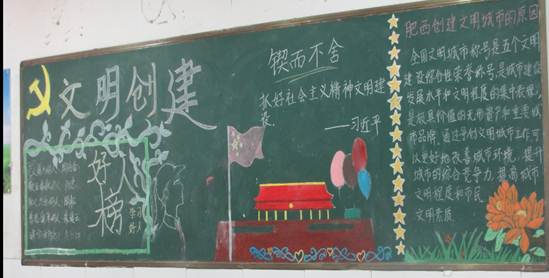 文明创建
好人榜
学习
锲而不舍
抓好社会主义精神文明建设
——习近平
肥西创建文明城市的原因
全国文明城市称号是五个文明
建设综合性荣誉称号,是城市建设
发展水平和文明程度的集中表现,
是极具价值的无形资产和重要城
市品牌。通过争创文明城市工作可
以更好地改善城市环境,提升
城市的综合竞争力,提高城市
文明程度和市民
文明素质